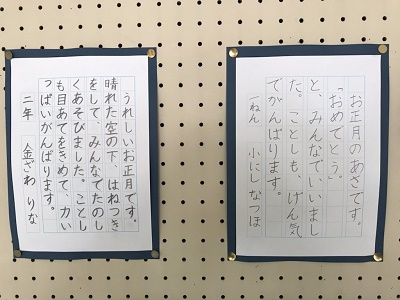 お正月のあさです。
「おめでとう。」
と、みんなでいいまし
た。ことしも、げん気
でがんばります。
一ねん 小にし なつほ
うれしいお正月です。
晴れた空の下、はねつき
をして、みんなでたのし
くあそびました。ことし
も目あてをきめて、力い
っぱいがんばります。
二年 金ざわ りな